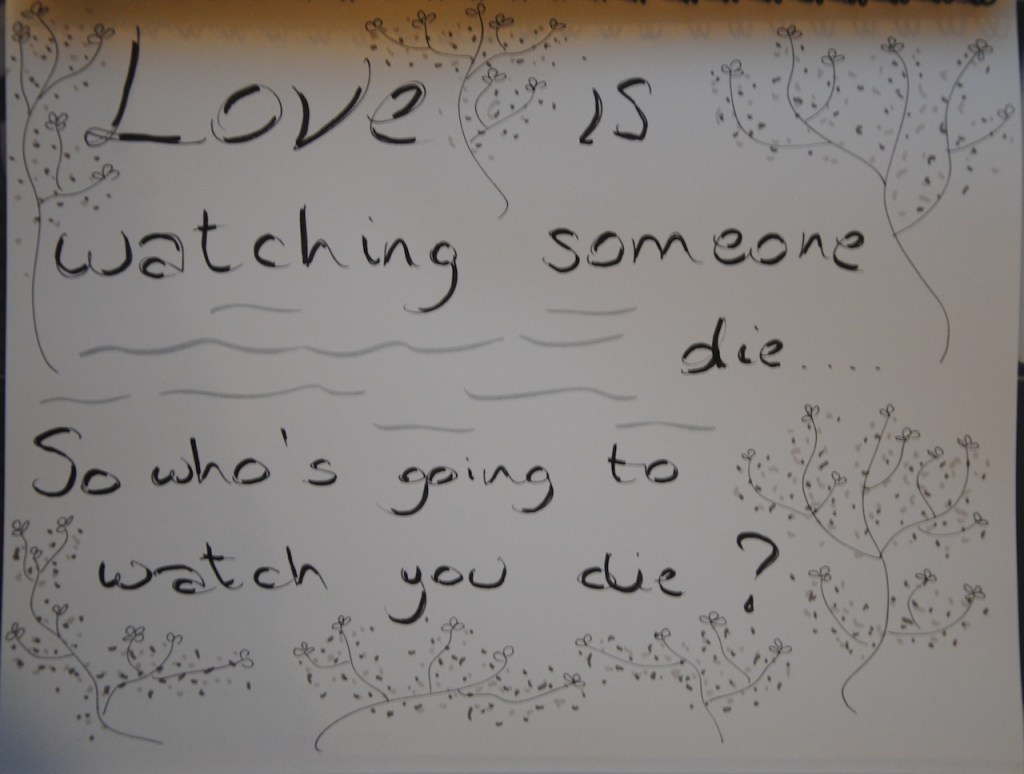 Love is
watching someone
die.....
So who's going to
watch you die?